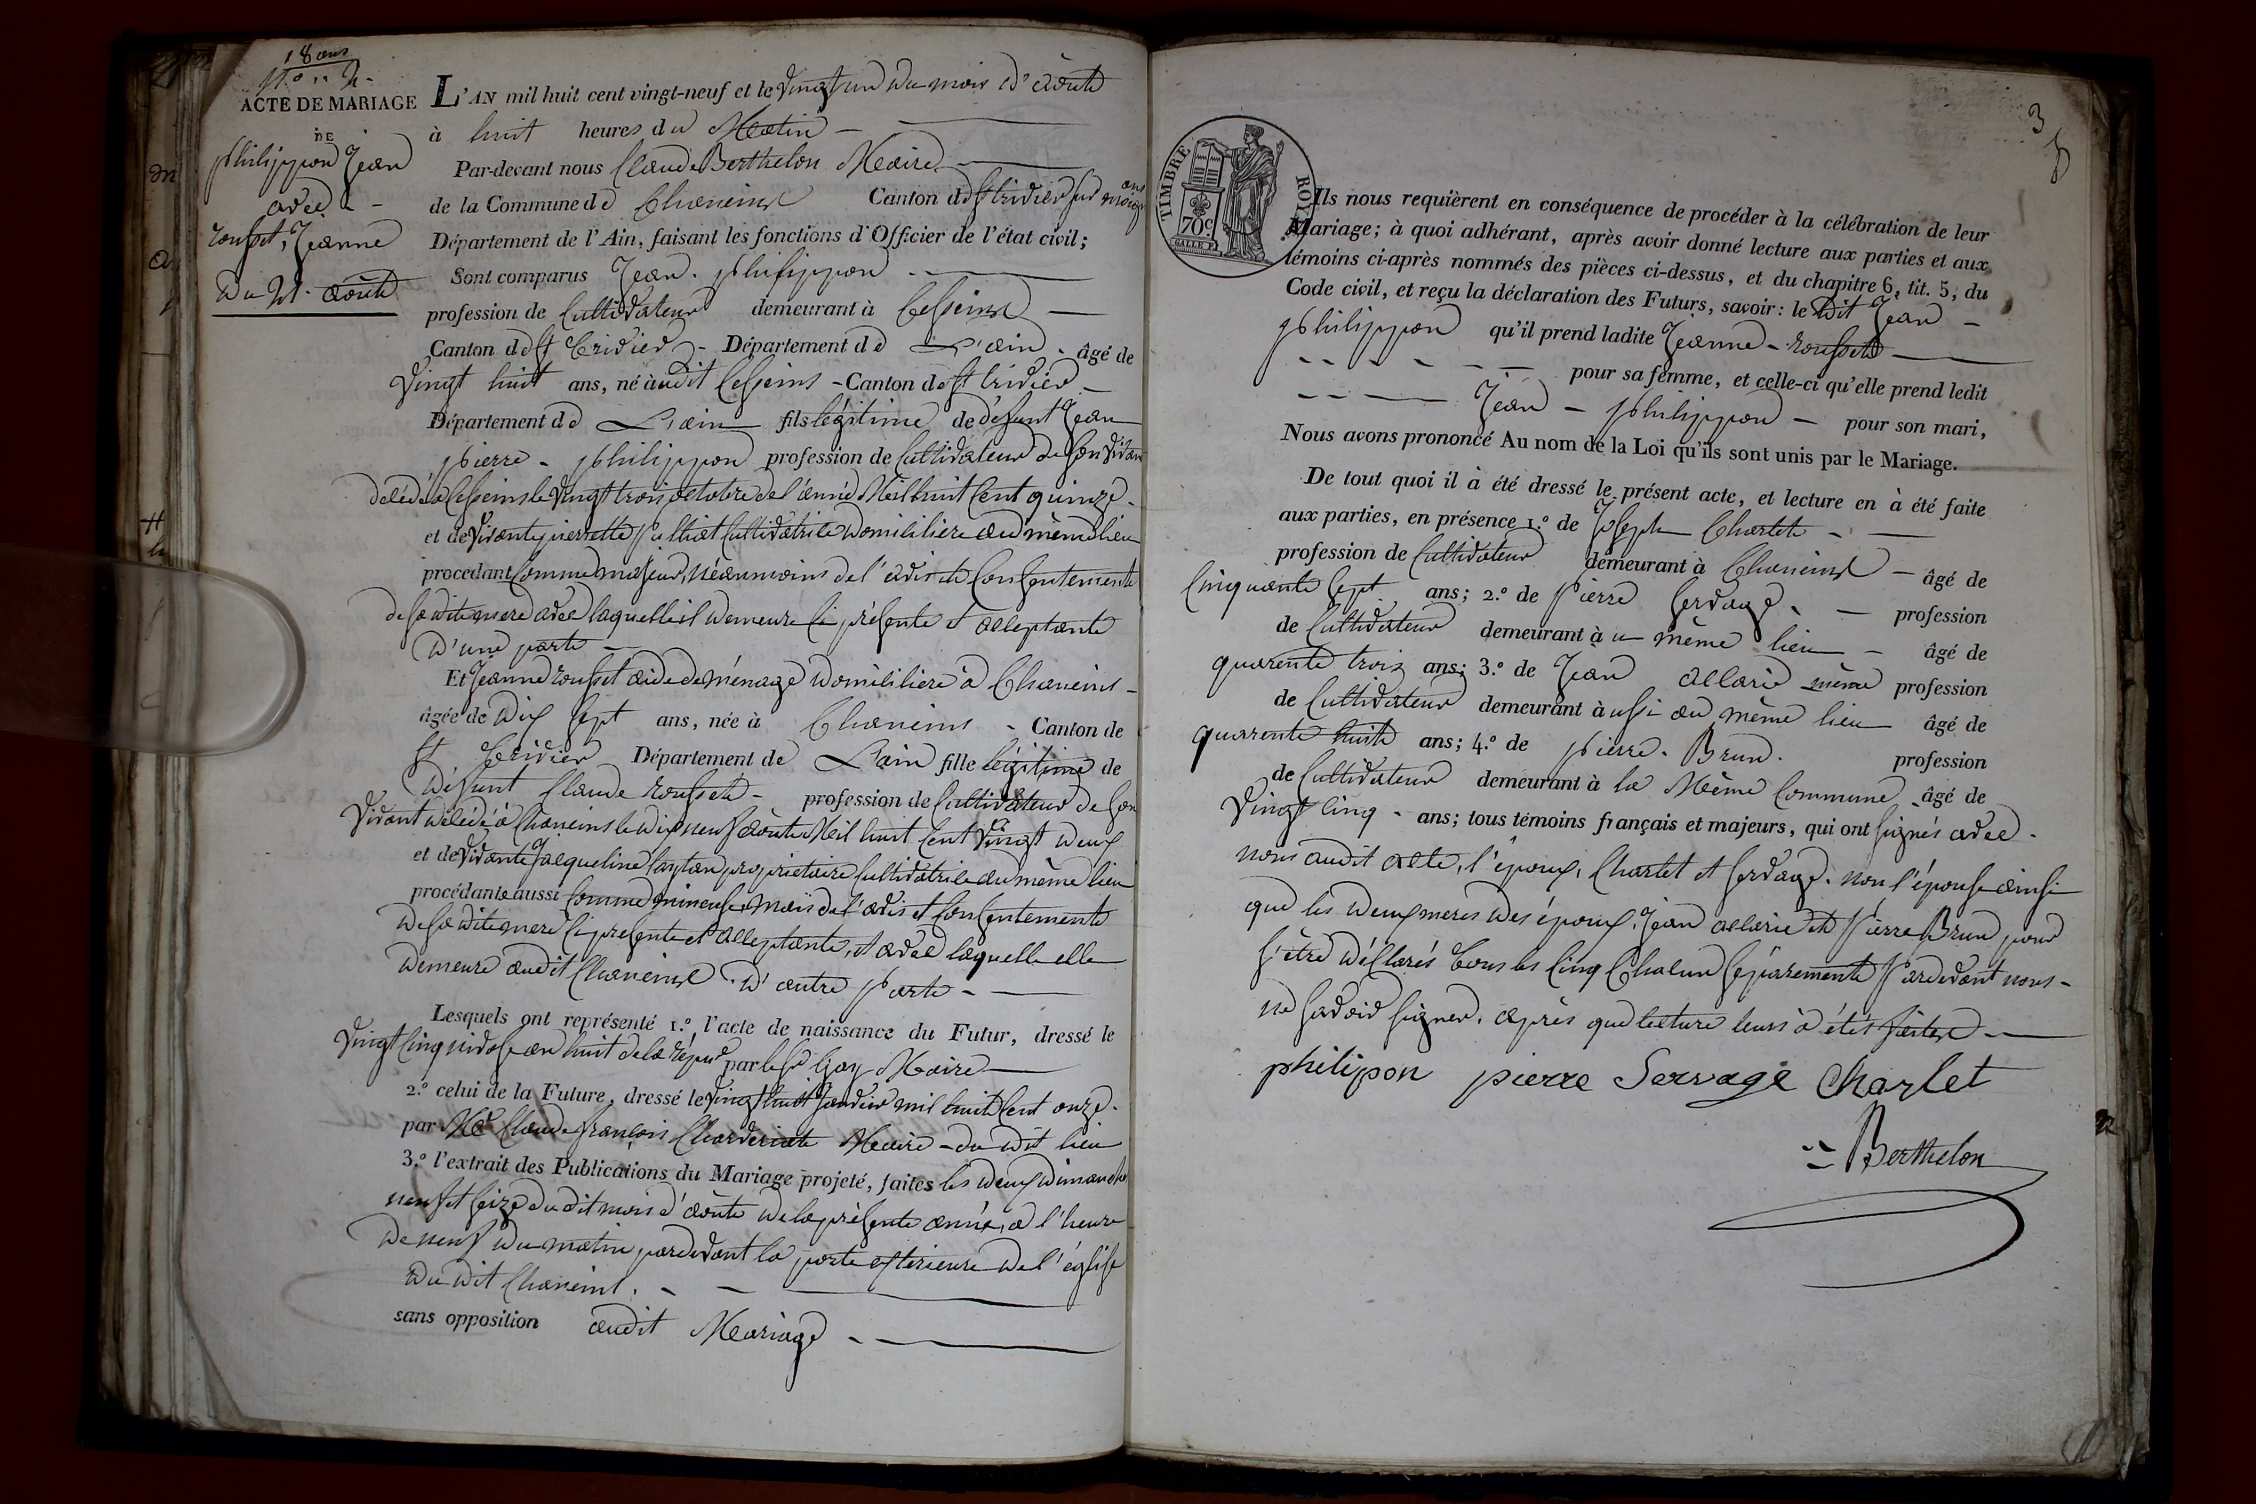 18 ans
N.o 2.
ACTE DE MARIAGE
DE
philippon Jean
avec
rousset, Jeanne
du 21. août
L'AN mil huit cent vingt-neuf et le vingt un du mois d'août
à huit heures du Matin
Par-devant nous Claude Berthelon Maire
de la Commune de Chaneins Canton de St trivier sur moignans
Département de l'Ain, faisant les fonctions d'Officier de l'état civil;
Sont comparus Jean. philippon
profession de Cultivateur demeurant à Cesseins
Canton de St Trivier - Département de L'ain - âgé de
vingt huit ans, né àudit Cesseins - Canton de St trivier
Département de L'ain fils légitime de défunt Jean
pierre - philippon profession de Cultivateur de son vivant
décédé à Cesseins le vingt trois octobre de l'année Mil huit Cent quinze
et de vivante pierrette Cultivatrice domiciliere au même lieu
procédant Comme majeur, néanmoins de l'avis et Consentement
de sa dite mere avec laquelle il demeure Ci présente et acceptante
d'une parte
Et Jeanne rousset aide de ménage domiciliere à Chaneins
âgée de dix sept ans, née à Chaneins - Canton de
St Trivier Département de L'ain fille légitime de
défunt Claude rousset - profession de Cultivateur de son
vivant décédé à Chaneins le dix neuf août Mil huit Cent vingt deux
et de vivante Jacqueline propriétaire Cultivatrice au même lieu
procédante aussi Comme mineure, mais de l'avis et Consentement
de sa dite mere Ci présente et acceptante, et avec laquelle elle
demeure audit Chaneins. d'autre parte
Lesquels ont représenté 1.o l'acte de naissance du Futur, dressé le
vingt Cinq nivose an huit de la répue par le sr Gay Maire
2.o celui de la Future, dressé le vingt huit Janvier mil huit Cent onze.
par Mr Claude françois Maire - du dit lieu
3.o l'extrait des Publications du Mariage projeté, faites les deux dimanches
neuf et seize du dit mois d'août de la présente année, à l'heure
de neuf du matin pardevant la porte exterieure de l'église
du dit Chaneins.
sans opposition audit Mariage
3
TIMBRE ROYAL
70c.
Ils nous requièrent en conséquence de procéder à la célébration de leur
Mariage; à quoi adhérant, après avoir donné lecture aux parties et aux
témoins ci-après nommés des pièces ci-dessus, et du chapitre 6, tit. 5, du
Code civil, et reçu la déclaration des Futurs, savoir: le dit Jean
philippon qu'il prend ladite Jeanne - rousset
pour sa femme, et celle-ci qu'elle prend ledit
Jean - philippon - pour son mari,
Nous avons prononcé Au nom de la Loi qu'ils sont unis par le Mariage.
De tout quoi il à été dressé le présent acte, et lecture en à été faite
aux parties, en présence 1.o de Joseph Charlet
profession de Cultivateur demeurant à Chaneins - âgé de
Cinquante sept ans; 2.o de pierre Servage - profession
de Cultivateur demeurant à u même lieu - âgé de
quarente trois ans; 3.o de Jean allarie même profession
de Cultivateur demeurant à ussi au même lieu âgé de
quarente huit ans; 4.o de pierre - Brun. profession
de Cultivateur demeurant à la Même Commune âgé de
vingt Cinq - ans; tous témoins français et majeurs, qui ont signés avec
nous audit acte, l'époux, Charlet et Servage. non l'épouse ainsi
que les deux meres des époux, Jean allarie et pierre Brun, pour
s'être déclarés tous les Cinq Chacun séparemente pardevant nous
ne savoir signer. après que lecture leurs à étés faites
philipon pierre Servage Charlet
Berthelon